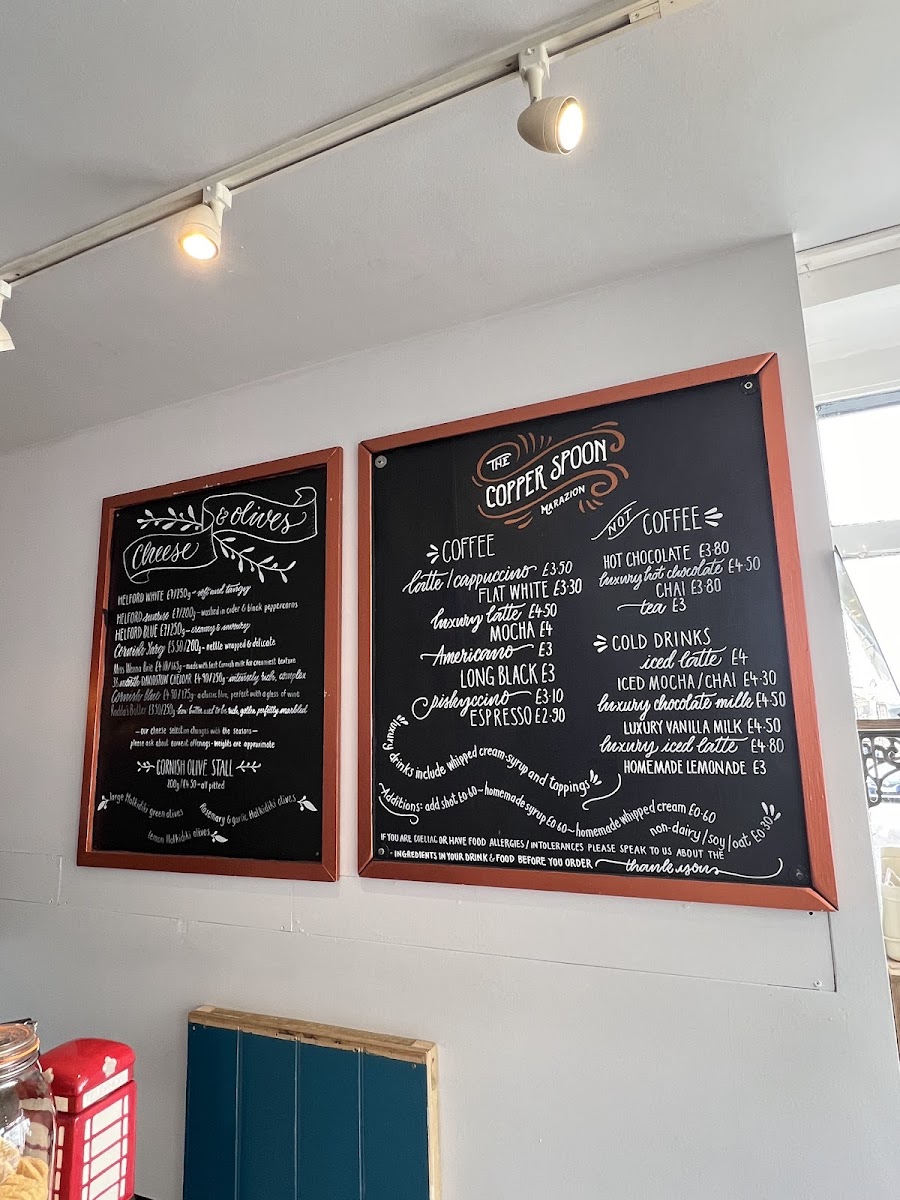 Cheese
& olives
HELFORD WHITE £7/250g - soft and tangy
HELFORD sunrise £7/200g - washed in cider & black peppercorns
HELFORD BLUE £7/250g - creamy & savoury
Cornish Yarg £5.50/200g - nettle wrapped & delicate
Miss Wenna Brie
DAVIDSTOW CHEDDAR £4.90/250g - intensely rich, complex
Cornish Blue £4.50/175g - a classic blue, perfect with a glass of wine
Rodda's Butter £3.50/250g
- Our cheese selection changes with the seasons -
please ask about current offerings - weights are approximate
CORNISH OLIVE STALL
200g/£4.50 - all pitted
large Halkidiki green olives
Rosemary & garlic Halkidiki olives
lemon Halkidiki olives
THE
COPPER SPOON
MARAZION
COFFEE
latte/cappuccino £3.50
FLAT WHITE £3.30
luxury latte £4.50
MOCHA £4
Americano £3
LONG BLACK £3
piskyccino £3.10
ESPRESSO £2.90
luxury drinks include whipped cream-syrup and toppings
NOT COFFEE
HOT CHOCOLATE £3.80
luxury hot chocolate £4.50
CHAI £3.80
tea £3
COLD DRINKS
iced latte £4
ICED MOCHA/CHAI £4.30
luxury chocolate milk £4.50
LUXURY VANILLA MILK £4.50
luxury iced latte £4.80
HOMEMADE LEMONADE £3
Additions: add shot £0.60 ~ homemade syrup £0.60 ~ homemade whipped cream £0.60
non-dairy/soy/oat £0.30
IF YOU ARE COELIAC OR HAVE FOOD ALLERGIES/INTOLERANCES PLEASE SPEAK TO US ABOUT THE
- INGREDIENTS IN YOUR DRINK & FOOD BEFORE YOU ORDER thank you